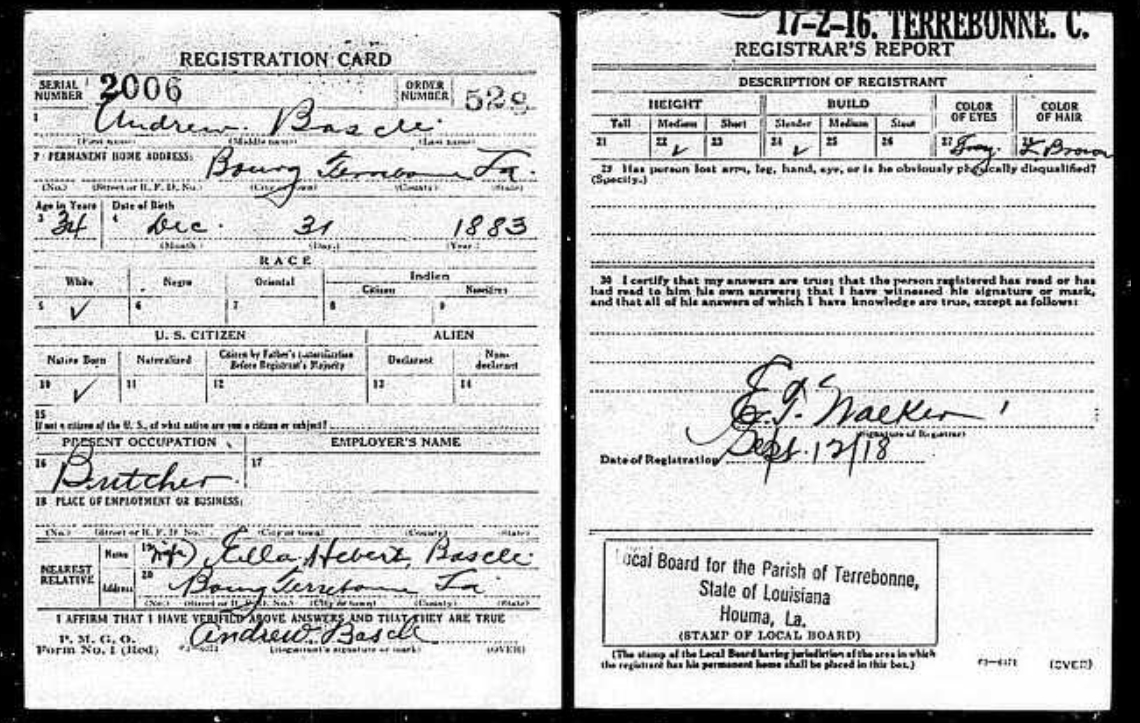 REGISTRATION CARD
SERIAL NUMBER 2006 ORDER NUMBER 528
1 Andrew. Bascle.
(First name) (Middle name) (Last name)
2 PERMANENT HOME ADDRESS: Bourg Terrebonne La.
(No.) (Street or R. F. D. No.) (City or town) (County) (State)
Age in Years Date of Birth
3 34 4 Dec. 31 1883
(Month) (Day) (Year)
RACE
White Negro Oriental Indian
Citizen Noncitizen
5 ✓ 6 7 8 9
U. S. CITIZEN ALIEN
Native Born Naturalized Citizen by Father's Naturalization Before Registrant's Majority Declarant Non-declarant
10 ✓ 11 12 13 14
15
If not a citizen of the U. S., of what nation are you a citizen or subject?
PRESENT OCCUPATION EMPLOYER'S NAME
16 Butcher 17
18 PLACE OF EMPLOYMENT OR BUSINESS:
(No.) (Street or R. F. D. No.) (City or town) (County) (State)
NEAREST RELATIVE Name 19 (wife) Ella Hebert Bascle.
Address 20 Bourg Terrebonne La
(No.) (Street or R. F. D. No.) (City or town) (County) (State)
I AFFIRM THAT I HAVE VERIFIED ABOVE ANSWERS AND THAT THEY ARE TRUE
P. M. G. O.
Form No. 1 (Red) Andrew Bascle
(Registrant's signature or mark) (OVER)
17-2-16. TERREBONNE. C.
REGISTRAR'S REPORT
DESCRIPTION OF REGISTRANT
HEIGHT BUILD COLOR OF EYES COLOR OF HAIR
Tall Medium Short Slender Medium Stout
21 22 ✓ 23 24 ✓ 25 26 27 Gray. 28 L Brown
29 Has person lost arm, leg, hand, eye, or is he obviously physically disqualified?
(Specify.)
30 I certify that my answers are true; that the person registered has read or has
had read to him his own answers; that I have witnessed his signature or mark,
and that all of his answers of which I have knowledge are true, except as follows:
E. T. Walker
(Signature of Registrar)
Date of Registration Sept. 12/18
Local Board for the Parish of Terrebonne,
State of Louisiana
Houma, La.
(STAMP OF LOCAL BOARD)
(The stamp of the Local Board having jurisdiction of the area in which
the registrant has his permanent home shall be placed in this box.)
(OVER)